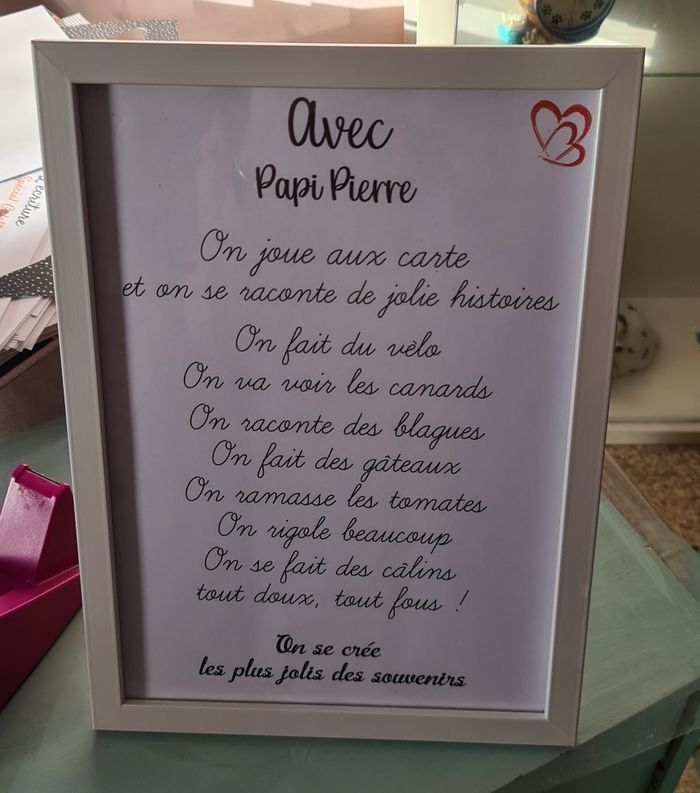 Avec
Papi Pierre
On joue aux carte
et on se raconte de jolie histoires
On fait du vèlo
On va voir les canards
On raconte des blagues
On fait des gâteaux
On ramasse les tomates
On rigole beaucoup
On se fait des câlins
tout doux, tout fous !
On se crée
les plus jolis des souvenirs
écriture